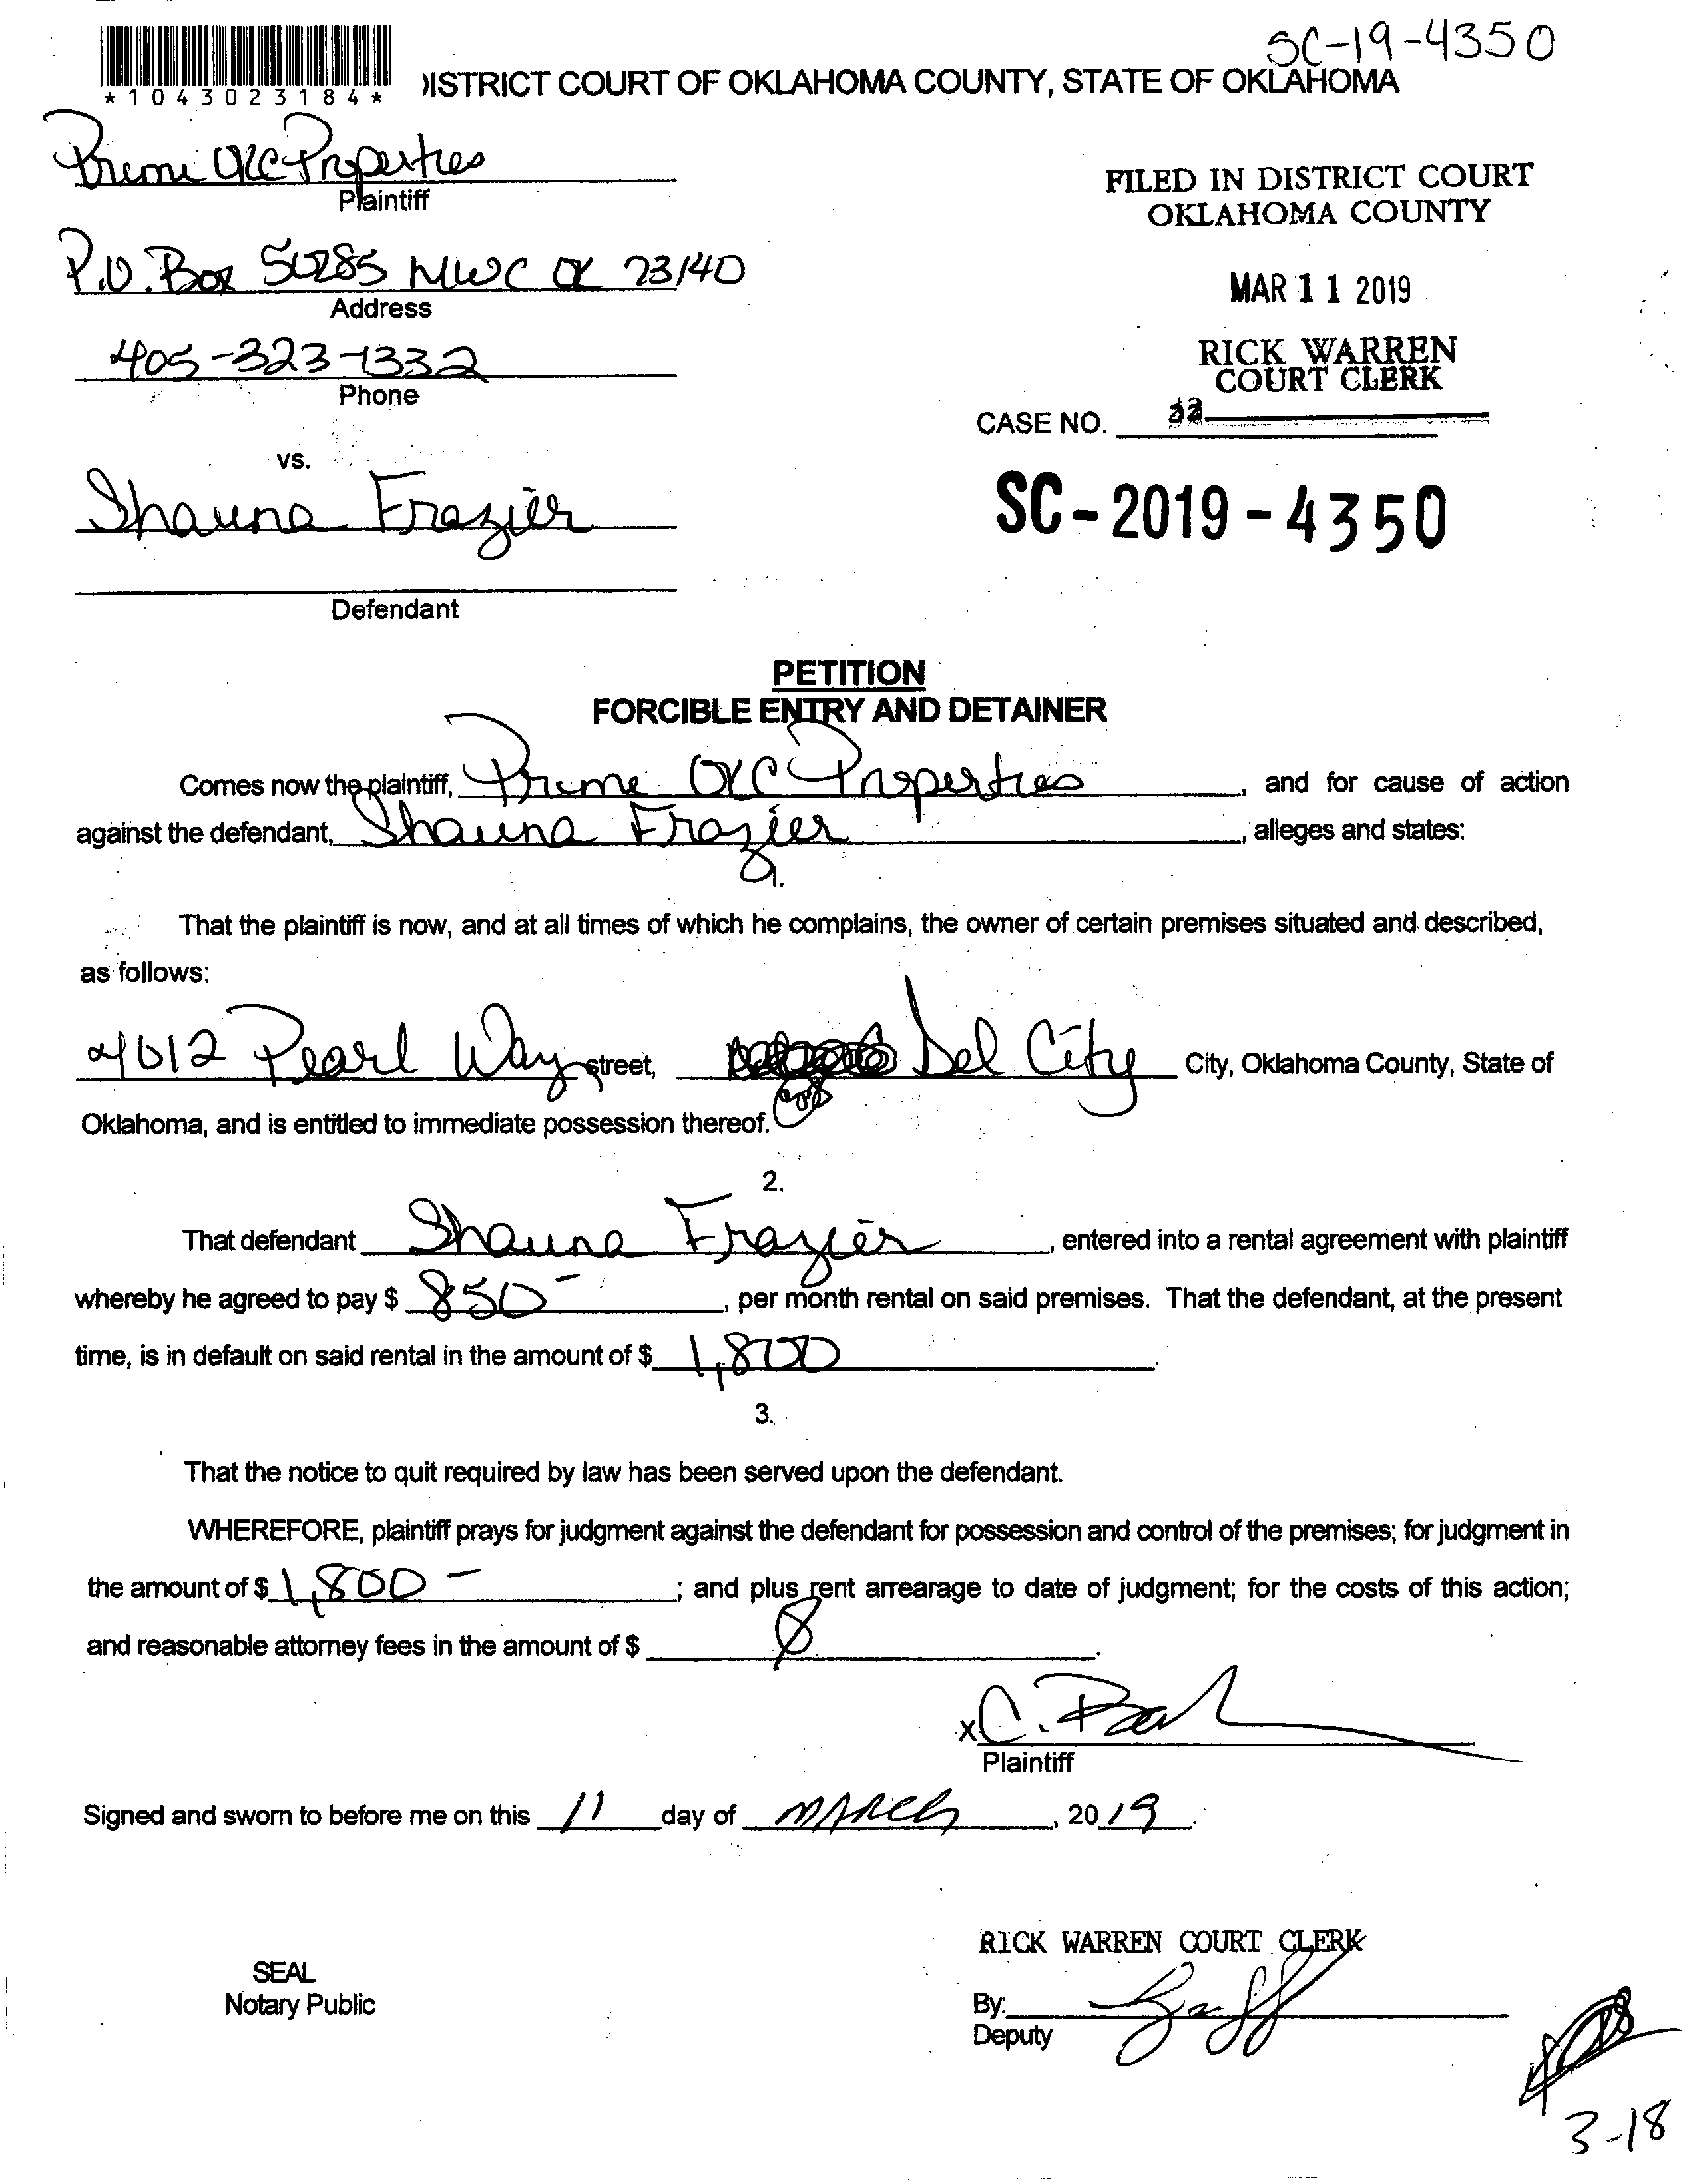 SC-19-4350
*1043023184*
DISTRICT COURT OF OKLAHOMA COUNTY, STATE OF OKLAHOMA
Prime OKC Properties
Plaintiff
FILED IN DISTRICT COURT
OKLAHOMA COUNTY
P.O. Box MWC OK 73140
Address
MAR 11 2019
405-323-1332
Phone
RICK WARREN
COURT CLERK
CASE NO.
vs.
Shauna Frazier
SC-2019-4350
Defendant
PETITION
FORCIBLE ENTRY AND DETAINER
Comes now the plaintiff, Prime OKC Properties, and for cause of action
against the defendant, Shauna Frazier, alleges and states:
1.
That the plaintiff is now, and at all times of which he complains, the owner of certain premises situated and described,
as follows:
4612 Pearl Way street, Del City City, Oklahoma County, State of
Oklahoma, and is entitled to immediate possession thereof.
2.
That defendant Shauna Frazier, entered into a rental agreement with plaintiff
whereby he agreed to pay $ 850-, per month rental on said premises. That the defendant, at the present
time, is in default on said rental in the amount of $ 1,800.
3.
That the notice to quit required by law has been served upon the defendant.
WHEREFORE, plaintiff prays for judgment against the defendant for possession and control of the premises; for judgment in
the amount of $ 1,800-; and plus rent arrearage to date of judgment; for the costs of this action;
and reasonable attorney fees in the amount of $ .
x C.
Plaintiff
Signed and sworn to before me on this 11 day of MARCH, 2019.
RICK WARREN COURT CLERK
SEAL
Notary Public
By:
Deputy
3-18